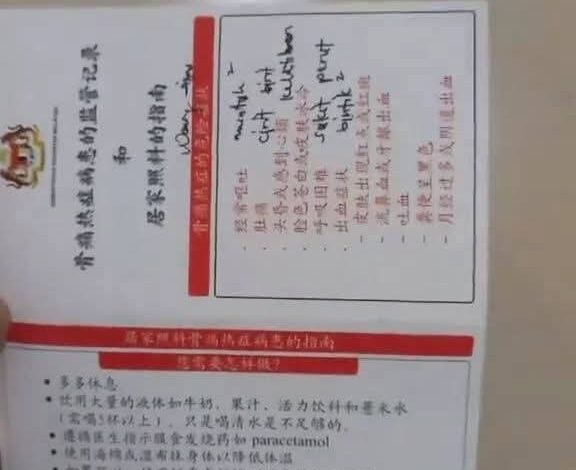 骨痛热症病患的监管记录
和
居家照料的指南
骨痛热症的危险症状
muntah2
cirit birit
keletihan
sakit perut
bintik2
· 经常呕吐
· 肚痛
· 头昏或感到心烦
· 脸色苍白或皮肤冰冷
· 呼吸困难
· 出血症状
- 皮肤出现红点或红斑
- 流鼻血或牙龈出血
- 吐血
- 粪便呈黑色
- 月经过多或阴道出血
居家照料骨痛热症病患的指南
您需要怎样做?
• 多多休息
• 饮用大量的液体如牛奶、果汁、活力饮料和薏米水
(需喝5杯以上)，只是喝清水是不足够的。
• 遵循医生指示服食发烧药如 paracetamol
• 使用海绵或湿布抹身体以降低体温